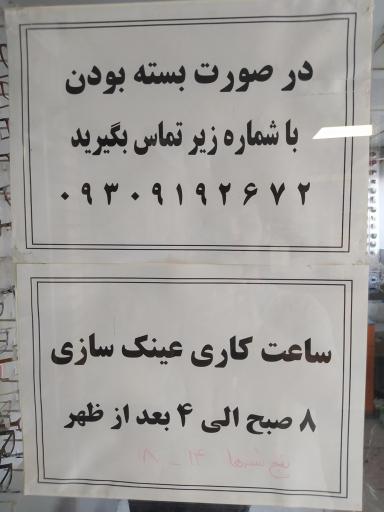 در صورت بسته بودن
با شماره زیر تماس بگیرید
۰۹۳۰۹۱۹۲۶۷۲
ساعت کاری عینک سازی
۸ صبح الی ۴ بعد از ظهر
پنج شنبه‌ها ۱۴ - ۸